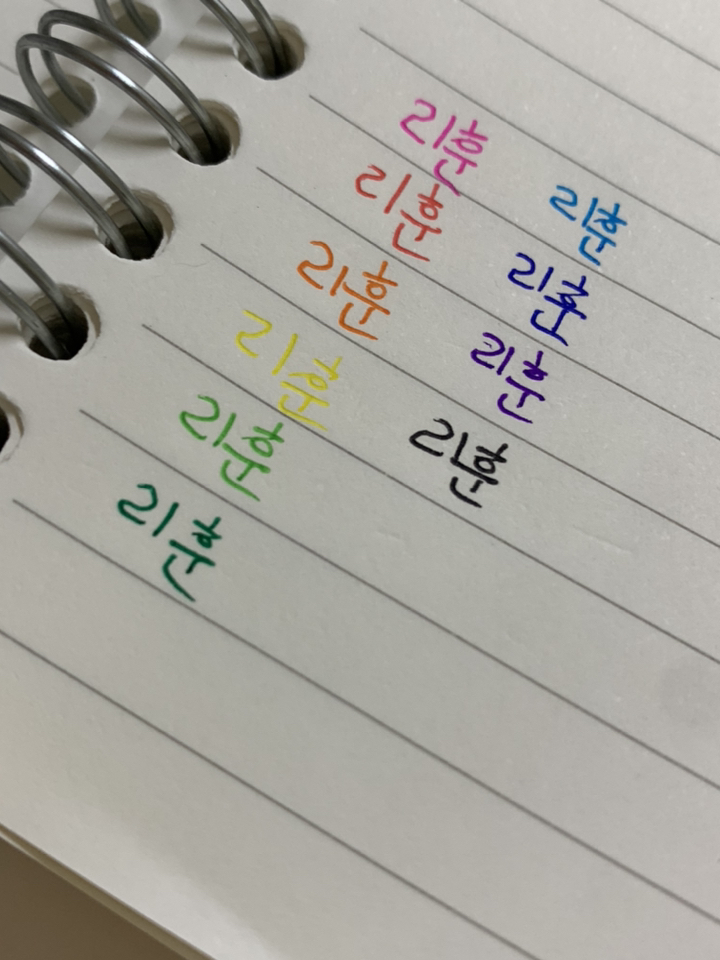 리훈
리훈
리훈
리훈
리훈
리훈
리훈
리훈
리훈
리훈